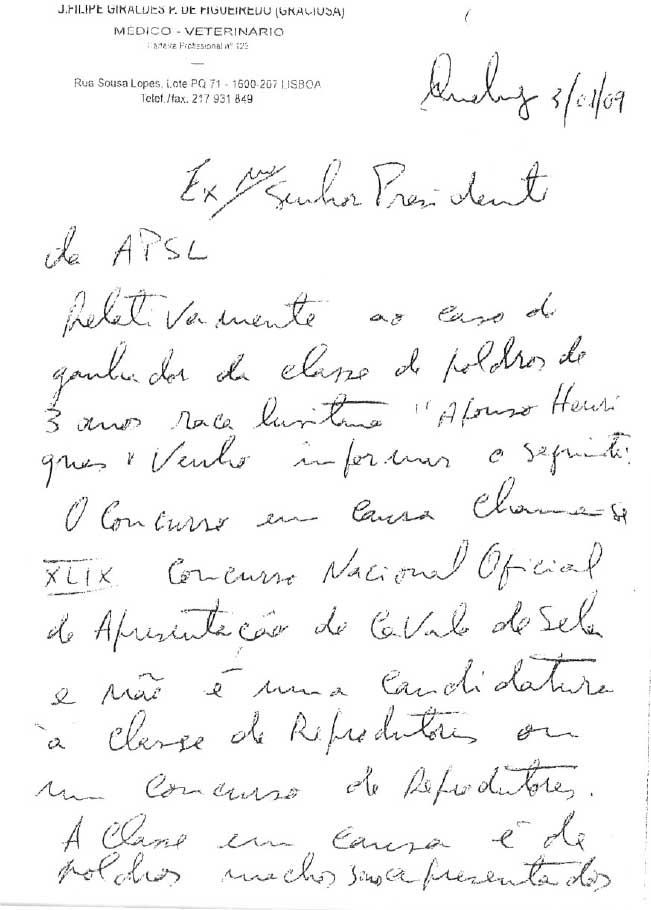 J.FILIPE GIRALDES P. DE FIGUEIREDO (GRACIOSA)
MÉDICO - VETERINÁRIO
Carteira Profissional nº 123
Rua Sousa Lopes, Lote PQ 71 - 1600-207 LISBOA
Telef./fax. 217 931 849
Queluz 3/01/09
Exmo Senhor Presidente
da APSL
Relativamente ao caso do
ganhador da classe de poldros de
3 anos raça lusitana "Afonso Henri
ques" Venho informar o seguinte:
O Concurso em causa chama-se
XLIX Concurso Nacional Oficial
de Apresentação do Cavalo de Sela
e não é uma Candidatura
à classe de Reprodutores ou
um Concurso de Reprodutores.
A Classe em causa é de
poldros machos apresentados